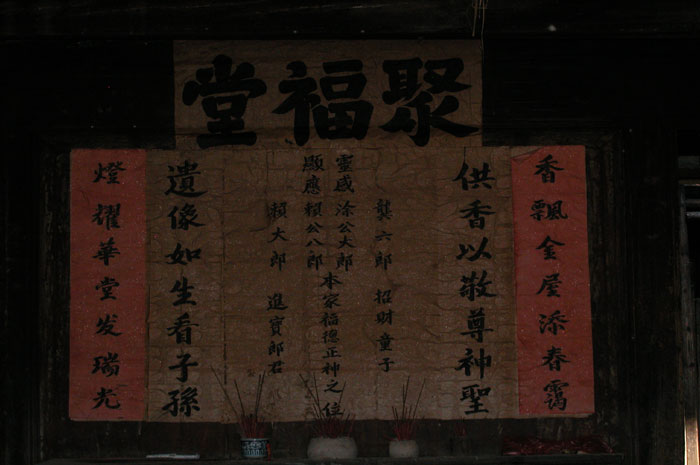 聚福堂
香飄金屋添春靄
供香以敬尊神聖
龔六郎 招財童子
靈感 涂公大郎
本家福德正神之位
顯應 賴公八郎
賴大郎 進寶郎君
遺像如生看子孫
燈耀華堂发瑞光